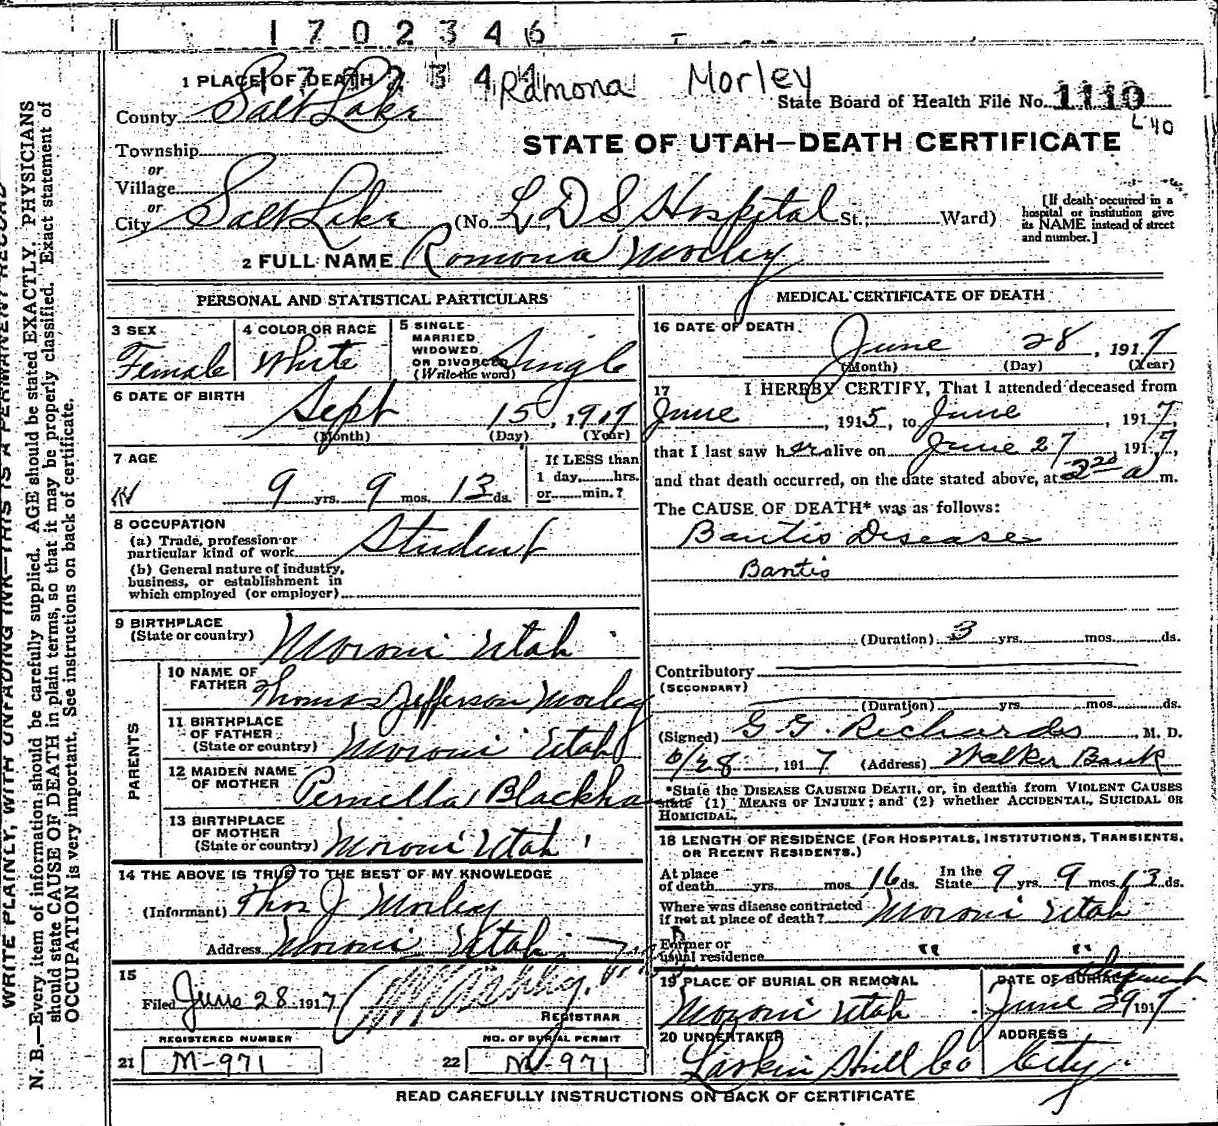 1702346
170234
Ramona Morley
1 PLACE OF DEATH
State Board of Health File No. 1110
County Salt Lake
L 40
STATE OF UTAH—DEATH CERTIFICATE
Township
or
Village
or
City Salt Lake (No. L D S Hospital St.; Ward)
[If death occurred in a
hospital or institution give
its NAME instead of street
and number.]
2 FULL NAME Romona Morley
PERSONAL AND STATISTICAL PARTICULARS
3 SEX Female
4 COLOR OR RACE White
5 SINGLE
MARRIED
WIDOWED
OR DIVORCED
(Write the word) Single
6 DATE OF BIRTH
Sept 15, 1907
(Month) (Day) (Year)
7 AGE
9 yrs. 9 mos. 13 ds.
If LESS than
1 day, hrs.
or min.?
8 OCCUPATION
(a) Trade, profession or
particular kind of work Student
(b) General nature of industry,
business, or establishment in
which employed (or employer)
9 BIRTHPLACE
(State or country) Moroni Utah
PARENTS
10 NAME OF
FATHER Thomas Jefferson Morley
11 BIRTHPLACE
OF FATHER
(State or country) Moroni Utah
12 MAIDEN NAME
OF MOTHER Pernella Blackham
13 BIRTHPLACE
OF MOTHER
(State or country) Moroni Utah
14 THE ABOVE IS TRUE TO THE BEST OF MY KNOWLEDGE
(Informant) Thos J Morley
Address Moroni Utah
15
Filed June 28 1917
REGISTRAR
REGISTERED NUMBER
21 M-971
NO. OF BURIAL PERMIT
22 M-971
MEDICAL CERTIFICATE OF DEATH
16 DATE OF DEATH
June 28, 1917
(Month) (Day) (Year)
17 I HEREBY CERTIFY, That I attended deceased from
June, 1915, to June, 1917,
that I last saw her alive on June 27 1917,
and that death occurred, on the date stated above, at 2 20 a m.
The CAUSE OF DEATH* was as follows:
Bantis Disease
Bantis
(Duration) 3 yrs. mos. ds.
Contributory
(SECONDARY)
(Duration) yrs. mos. ds.
(Signed) G. G. Richards, M. D.
6/28, 1917 (Address) Walker Bank
*State the DISEASE CAUSING DEATH, or, in deaths from VIOLENT CAUSES
state (1) MEANS OF INJURY; and (2) whether ACCIDENTAL, SUICIDAL OR
HOMICIDAL.
18 LENGTH OF RESIDENCE (FOR HOSPITALS, INSTITUTIONS, TRANSIENTS,
OR RECENT RESIDENTS.)
At place
of death yrs. mos. 16 ds. In the
State 9 yrs. 9 mos. 13 ds.
Where was disease contracted
if not at place of death? Moroni Utah
Former or
usual residence " "
19 PLACE OF BURIAL OR REMOVAL
Moroni Utah
DATE OF BURIAL Shipment
June 29 1917
20 UNDERTAKER
Larkin Hull Co
ADDRESS
City
READ CAREFULLY INSTRUCTIONS ON BACK OF CERTIFICATE
WRITE PLAINLY, WITH UNFADING INK—THIS IS A PERMANENT RECORD
N. B.—Every item of information should be carefully supplied. AGE should be stated EXACTLY. PHYSICIANS
should state CAUSE OF DEATH in plain terms, so that it may be properly classified. Exact statement of
OCCUPATION is very important. See instructions on back of certificate.